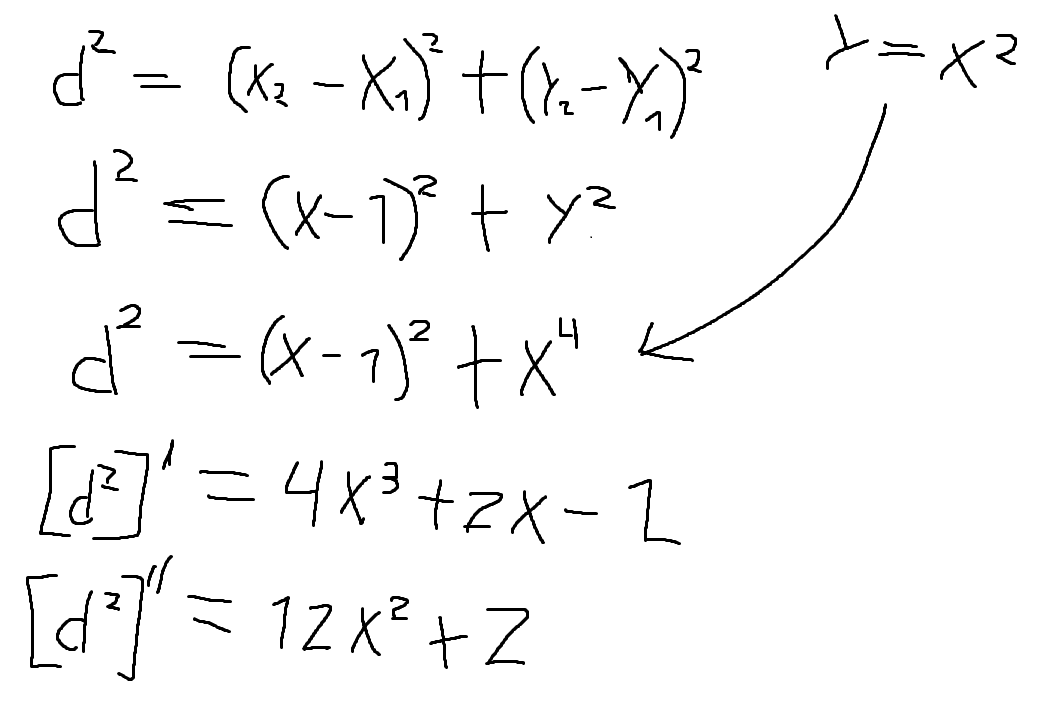 d² = (x₂ - x₁)² + (y₂ - y₁)²
y = x²
d² = (x - 1)² + y²
d² = (x - 1)² + x⁴
[d²]' = 4x³ + 2x - 2
[d²]'' = 12x² + 2